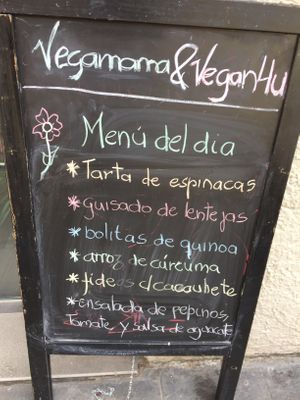 Vegamama & Vegan4u
Menú del dia
* Tarta de espinacas
* guisado de lentejas
* bolitas de quinoa
* arroz de cúrcuma
* fideos c/cacauhete
* ensalada de pepinos,
Tomate y salsa de aguacate